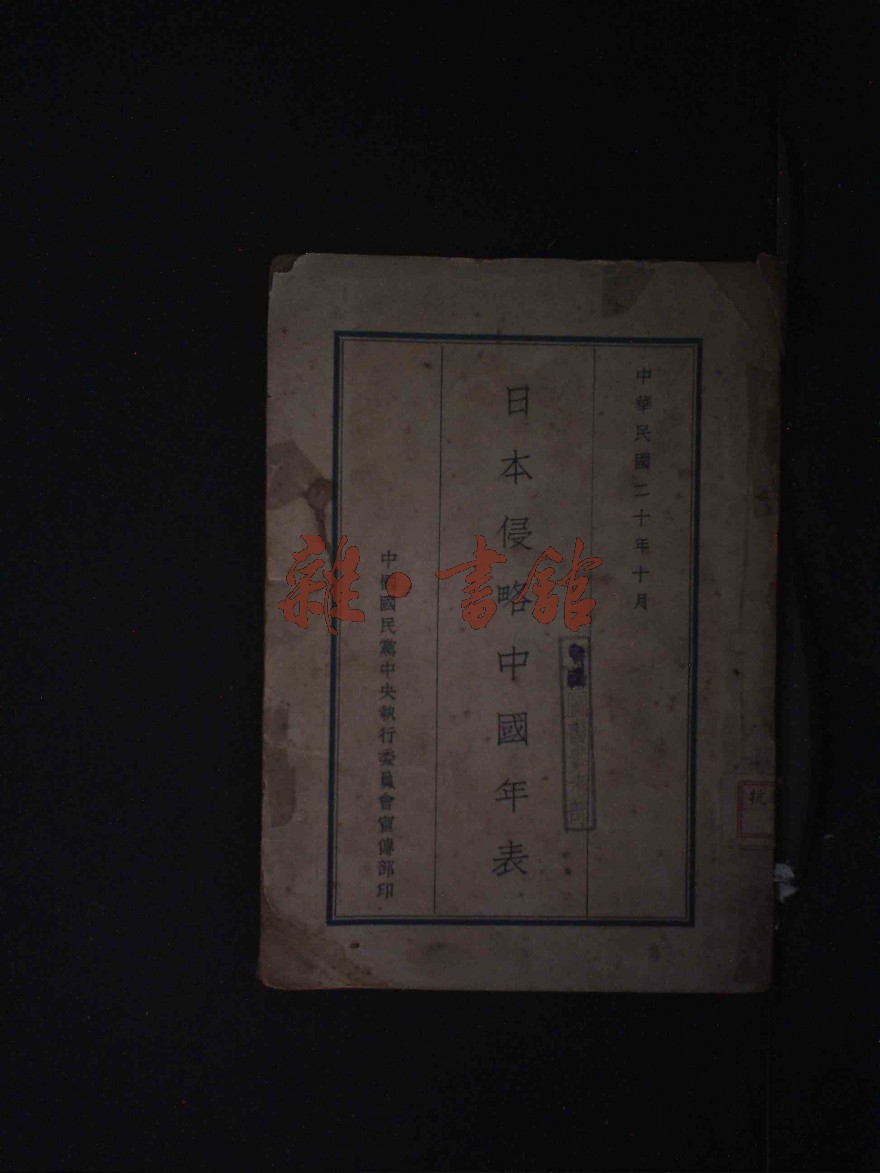 中華民國二十年十月
日本侵略中國年表
中國國民黨中央執行委員會宣傳部印
雜·書館
抗